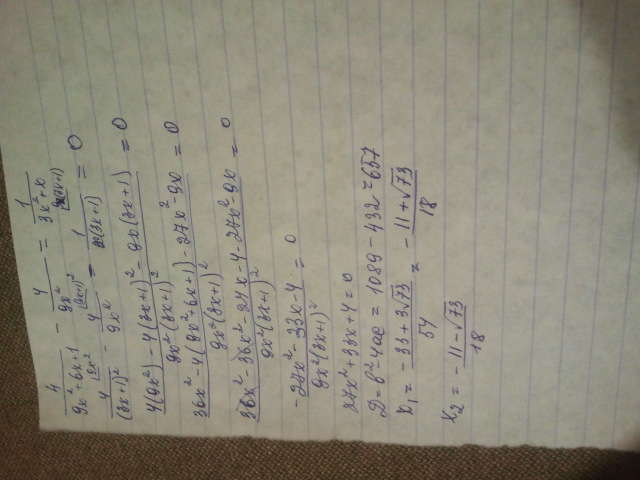 4/(9x²+6x+1) - 4/(9x²) = 1/(3x²+x)
4/(3x+1)² |9x² - 4/(9x²) |(3x+1)² - 1/(x(3x+1)) |9x(3x+1) = 0
(4(9x²) - 4(3x+1)² - 9x(3x+1))/(9x²(3x+1)²) = 0
(36x² - 4(9x²+6x+1) - 27x² - 9x)/(9x²(3x+1)²) = 0
(36x² - 36x² - 24x - 4 - 27x² - 9x)/(9x²(3x+1)²) = 0
(-27x² - 33x - 4)/(9x²(3x+1)²) = 0
27x² + 33x + 4 = 0
Д = b² - 4ac = 1089 - 432 = 657
x₁ = (-33 + 3√73)/54 = (-11 + √73)/18
x₂ = (-11 - √73)/18